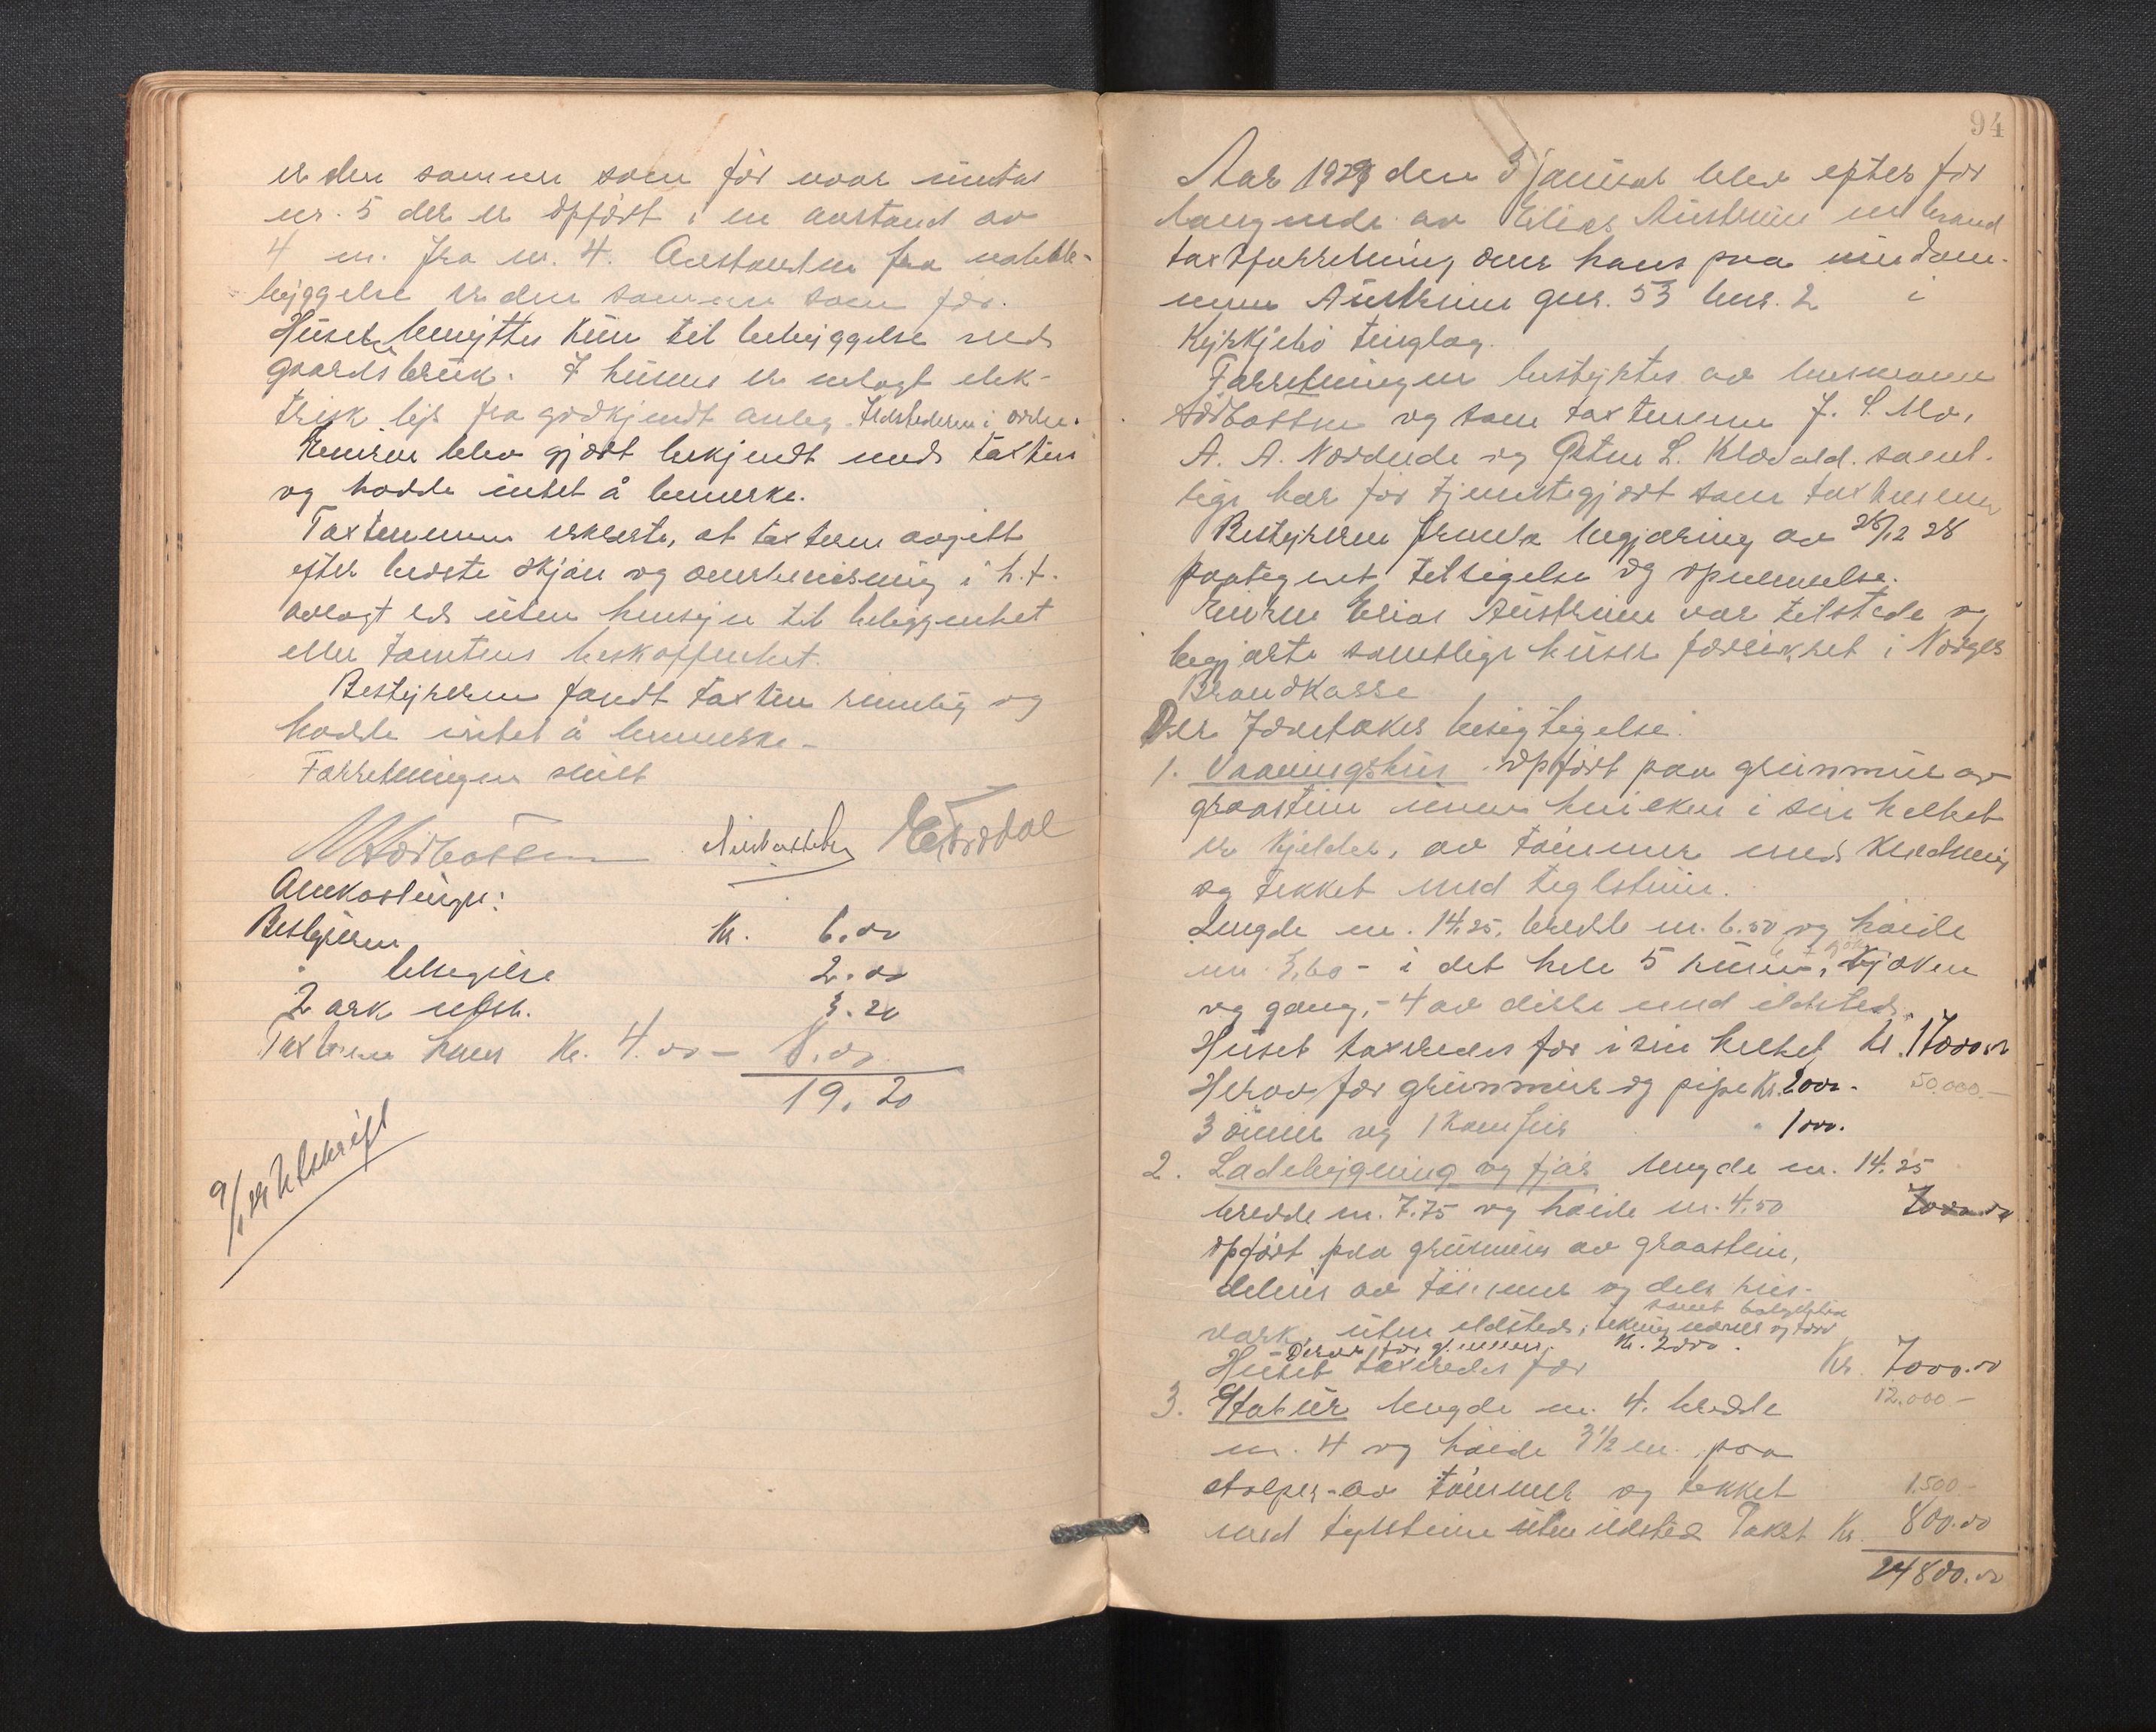 er den samme som før naar untas
nr. 5 der er opført i en avstand av
4 m. fra nr. 4. Avstanden fra nabobe-
byggelse er den samme som før.
Huset benyttes kun til bebyggelse ved
gaardsbruk. I husene er indlagt elek-
trisk lys fra godkjendt anleg. Ildstederne i orden.
Eieren blev gjort bekjendt med taxten
og hadde intet å bemerke.
Taxtmennene erklærte, at taxten avgitt
efter bedste skjøn og overbevisning i h.t.
avlagt ed uten hensyn til beliggenhet
eller tomtens beskaffenhet.
Bestyreren fandt taxten rimelig og
hadde intet å bemerke.
Forretningen slutt
Omkostninger:
Bestyreren Kr. 6.00
" befragelse 2.00
2 ark utsk. 3.20
Taxtmenn hver Kr. 4.00 – 8.00
19.20
9/1 29 Utskrift
94
Aar 1929 den 3 januar blev efter for
langende av Elias Austreim en brand
taxtforretning over hans paa eiendom-
men Austreim gnr. 53 bnr. 2 i
Kyrkjebø tinglag.
Forretningen bestyrtes av lensmann
Nordbotten og som taxtmenn J. S. Mo,
A. A. Nordeide og Peter L. Klævold. samt-
lige har før tjenestegjort som taxtmenn
Bestyreren fremla begjæring av 28/12 28
paategnet tilsigelse og opnevnelse.
Eieren Elias Austreim var tilstede og
begjærte samtlige huser forsikret i Norges
Brandkasse
Der foretokes besigtigelse:
1. Vaaningshus opført paa grunmur av
graastein under hvilken i sin helhet
er kjelder, av tømmer med kledning
og tekket med teglstein.
Lengde m. 14.25, bredde m. 6.50 og høide
m. 5,60 – i det hele 5 rum, kjøken
og gang, – 4 av disse med ildsted.
Huset taxeredes for i sin helhet kr. 17000.00
Herav for grunmur og pipe Kr. 2000.- 50.000.-
3 ovner og 1 komfur " 1000.
2. Ladebygning og fjøs lengde m. 14.25
bredde m. 7.75 og høide m. 4.50 7000.00
opført paa grunmur av graastein,
delvis av tømmer og dels bin-
samt bølgeblik
verk, uten ildsted, tekning næver og torv
Derav for gr. mur. Kr. 2000.
Huset taxeredes for Kr. 7000.00
12.000-
3. Stabur lengde m. 4. bredde
m. 4 og høide 3 1/2 m. paa
stolper av tømmer og tekket
1.500-
med teglsteine uten ildsted Takst Kr. 800.00
24800.00